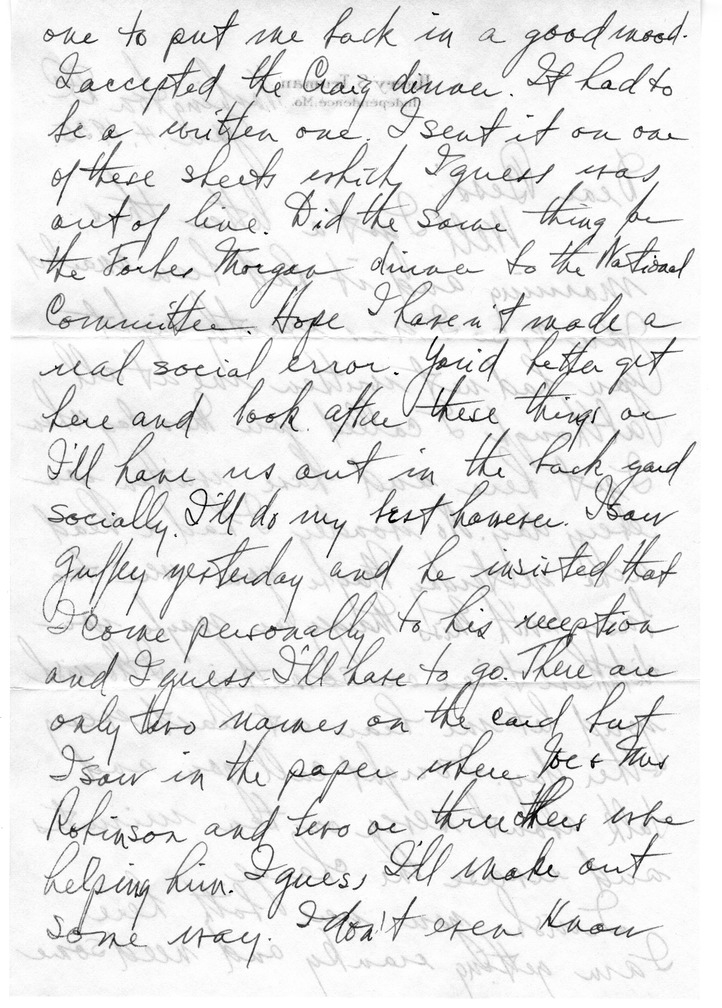 one to put me back in a good mood.
I accepted the Craig dinner. It had to
be a written one. I sent it on one
of these sheets which I guess was
out of line. Did the same thing for
the Forbes Morgan dinner to the National
Committee. Hope I haven't made a
real social error. You'd better get
here and look after these things or
I'll have us out in the back yard
socially. I'll do my best however. I saw
Guffey yesterday and he insisted that
I come personally to his reception
and I guess I'll have to go. There are
only two names on the card but
I saw in the paper where Joe & Mrs
Robinson and two or three others were
helping him. I guess I'll make out
some way. I don't even know